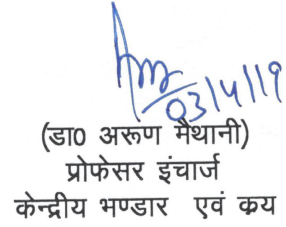 03/4/19
(डा0 अरूण मैथानी)
प्रोफेसर इंचार्ज
केन्द्रीय भण्डार एवं क्रय